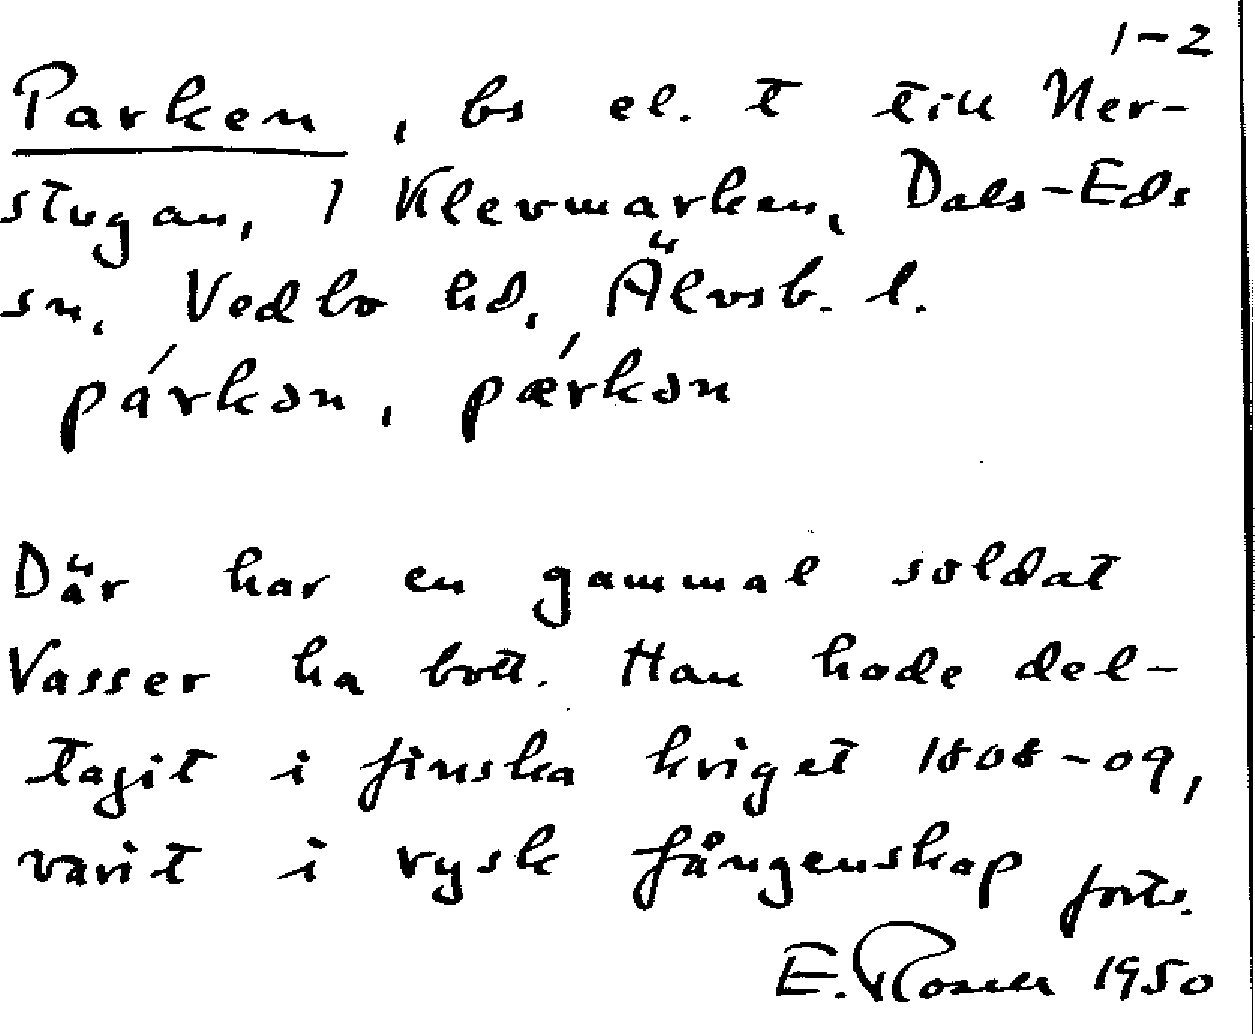 1-2
Parken, bs el. t till Ner-
stugan, 1 Klevmarken, Dals-Eds
sn, Vedbo hd, Älvsb. l.
párkən, pǽrkən
Där har en gammal soldat
Vasser ha bott. Han hade del-
tagit i finska kriget 1808-09,
varit i rysk fångenskap forts.
E. Rosell 1950